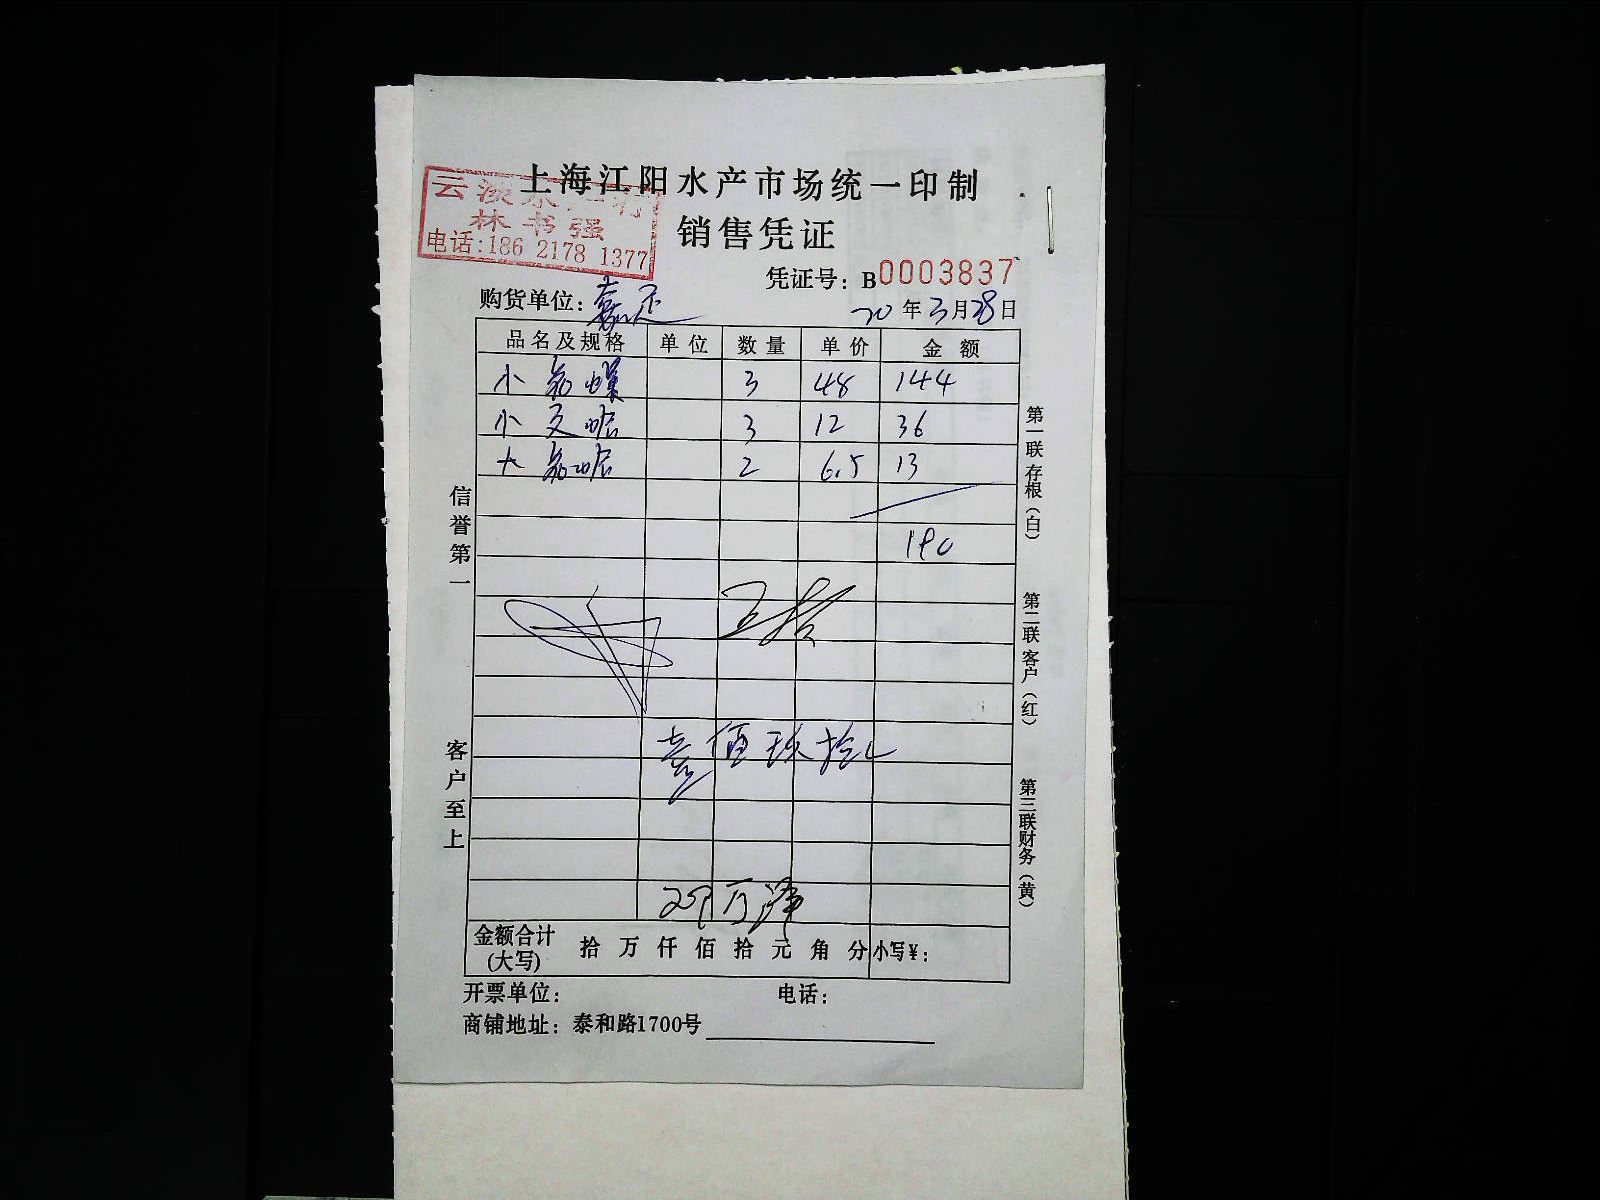 上海江阳水产市场统一印制
云
林书强
电话:186 2178 1377
销售凭证
凭证号: B0003837
购货单位: 嘉
20年3月28日
品名及规格 单位 数量 单价 金额
小 螺 3 48 144
小 文蛤 3 12 36
大 蛤 2 6.5 13
190
壹佰玖拾
金额合计(大写) 拾 万 仟 佰 拾 元 角 分 小写¥:
开票单位: 电话:
商铺地址: 泰和路1700号
信誉第一
客户至上
第一联 存根(白)
第二联 客户(红)
第三联 财务(黄)